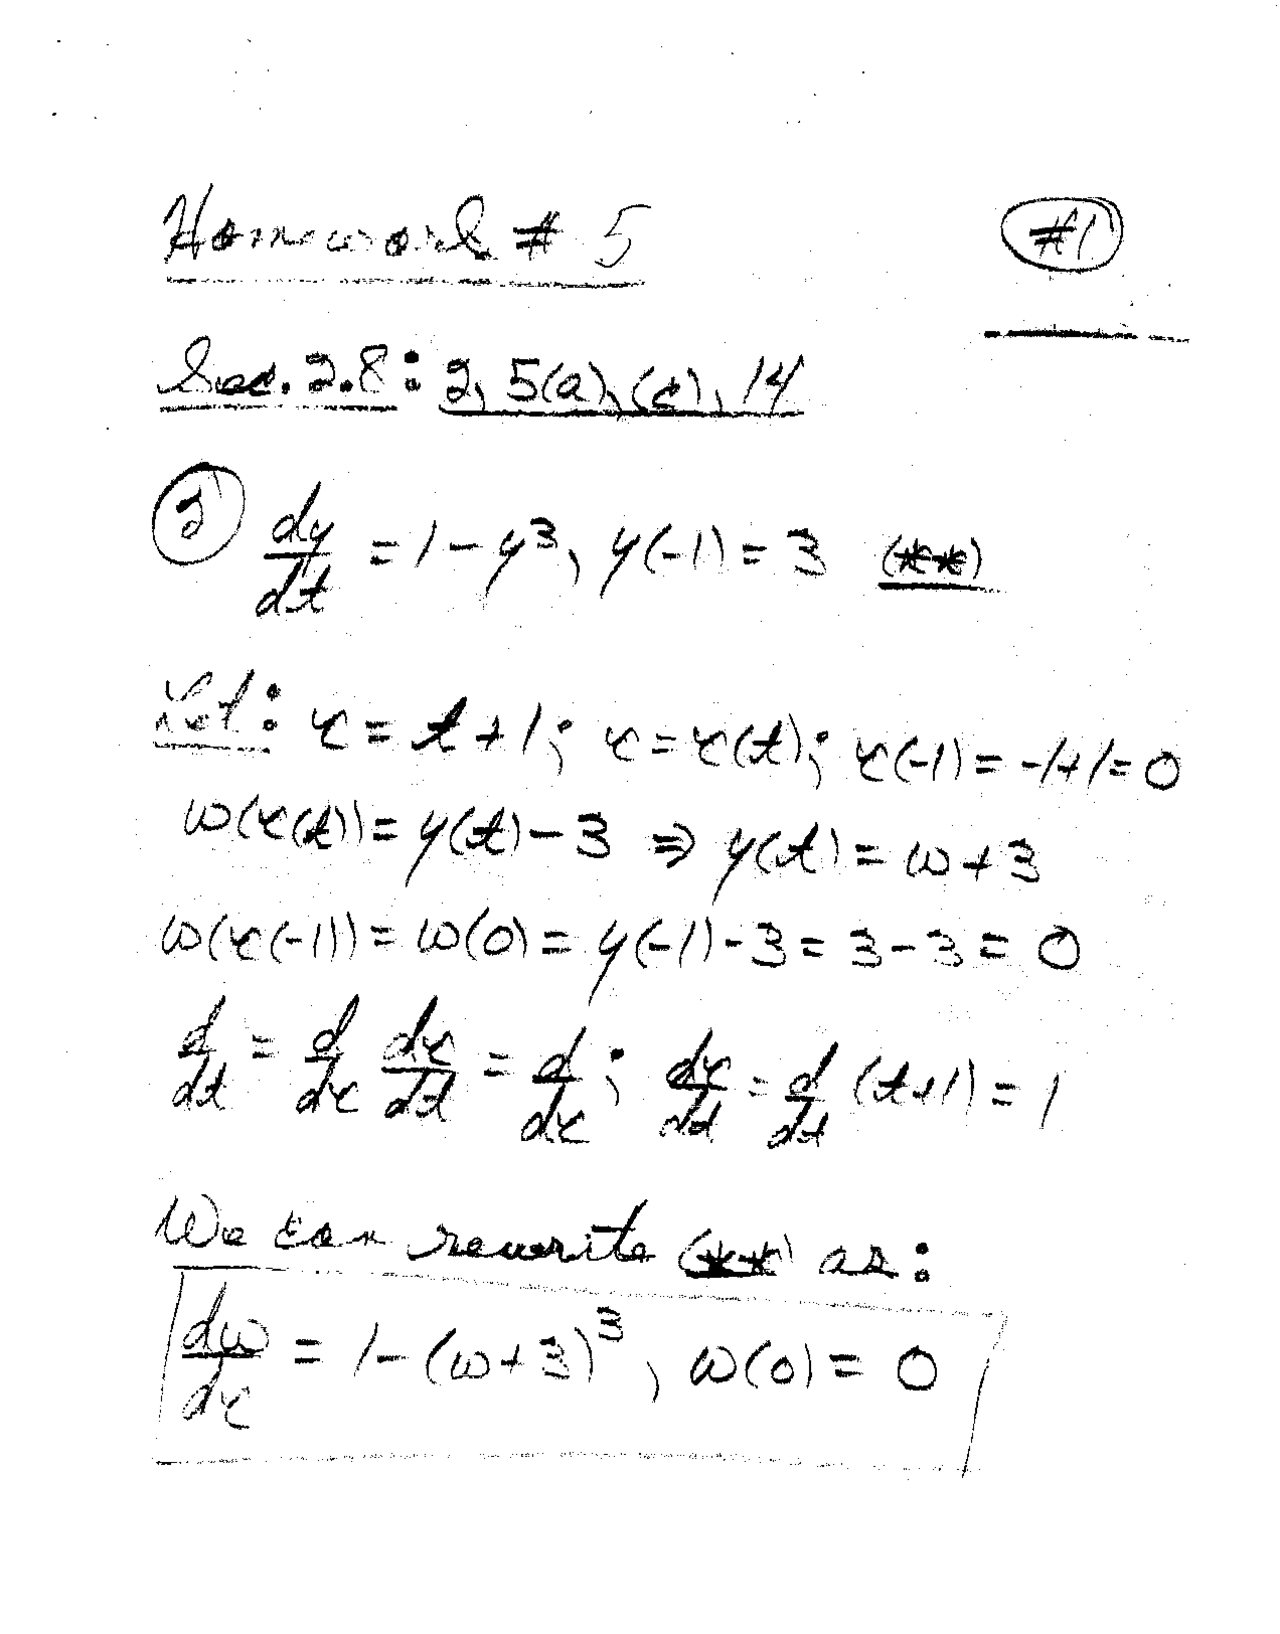 Homework # 5
#1
Sec. 2.8: 2, 5(a), (c), 14
② dy/dt = 1 - y³, y(-1) = 3 (**)
Let: x = t + 1; x = x(t); x(-1) = -1+1 = 0
w(x(t)) = y(t) - 3 ⇒ y(t) = w + 3
w(x(-1)) = w(0) = y(-1) - 3 = 3 - 3 = 0
d/dt = d/dx dx/dt = d/dx; dx/dt = d/dt (t+1) = 1
We can rewrite (**) as:
dw/dx = 1 - (w+3)³, w(0) = 0